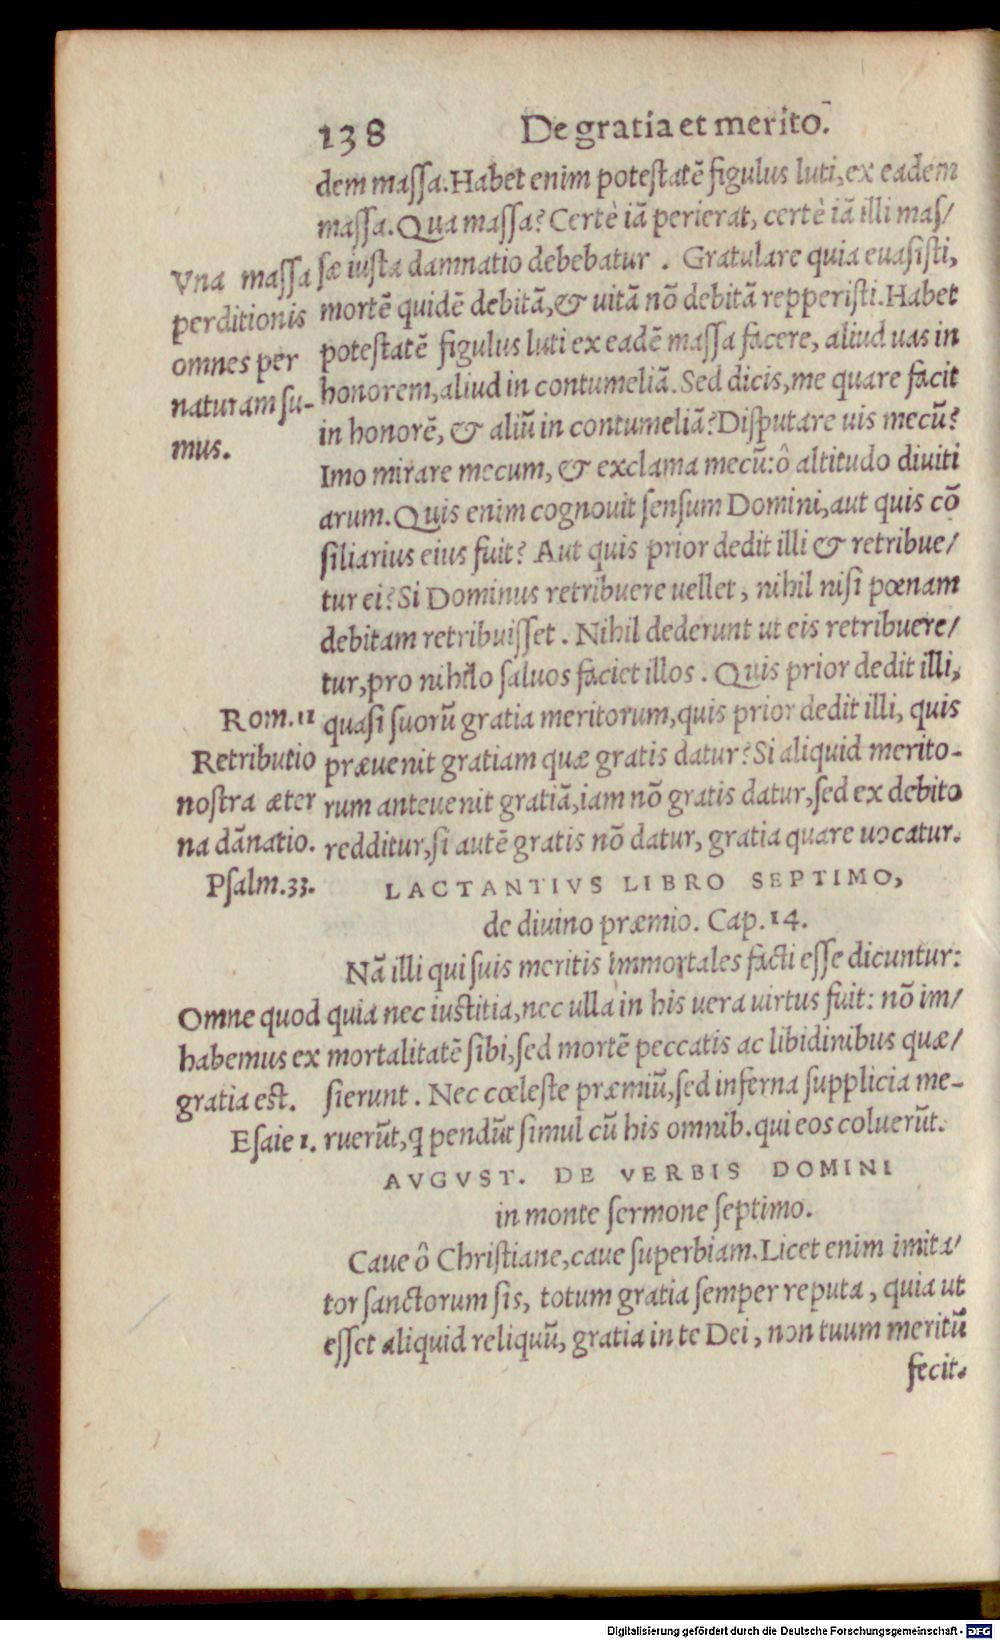 138 De gratia et merito.
dem maſſa. Habet enim poteſtatē figulus luti, ex eadem
maſſa. Qua maſſa? Certè iā perierat, certè iā illi maſ/
ſæ iuſta damnatio debebatur . Gratulare quia euaſiſti,
mortē quidē debitā, & uitā nō debitā repperiſti. Habet
poteſtatē figulus luti ex eadē maſſa facere, aliud uas in
honorem, aliud in contumeliā. Sed dicis, me quare facit
in honorē, & aliū in contumeliā? Diſputare uis mecū?
Imo mirare mecum, & exclama mecū: ô altitudo diuiti
arum. Quis enim cognouit ſenſum Domini, aut quis cō
ſiliarius eius fuit? Aut quis prior dedit illi & retribue/
tur ei? Si Dominus retribuere uellet, nihil niſi pœnam
debitam retribuiſſet . Nihil dederunt ut eis retribuere/
tur, pro nihilo ſaluos faciet illos . Quis prior dedit illi,
quaſi ſuorū gratia meritorum, quis prior dedit illi, quis
præuenit gratiam quæ gratis datur? Si aliquid merito-
rum anteuenit gratiā, iam nō gratis datur, ſed ex debito
redditur, ſi autē gratis nō datur, gratia quare uocatur.
Vna maſſa
perditionis
omnes per
naturam ſu-
mus.
Rom. 11
Retributio
noſtra æter
na dānatio.
Pſalm. 33.
LACTANTIVS LIBRO SEPTIMO,
de diuino præmio. Cap. 14.
Nā illi qui ſuis meritis immortales facti eſſe dicuntur:
quia nec iuſtitia, nec ulla in his uera uirtus fuit: nō im/
mortalitatē ſibi, ſed mortē peccatis ac libidinibus quæ/
ſierunt . Nec cœleſte præmiū, ſed inferna ſupplicia me-
ruerūt, q̨ pendūt ſimul cū his omnib. qui eos coluerūt.
Omne quod
habemus ex
gratia eſt.
Eſaie 1.
AVGVST. DE VERBIS DOMINI
in monte ſermone ſeptimo.
Caue ô Chriſtiane, caue ſuperbiam. Licet enim imita/
tor ſanctorum ſis, totum gratia ſemper reputa, quia ut
eſſet aliquid reliquū, gratia in te Dei, non tuum meritū
fecit.
Digitalisierung gefördert durch die Deutsche Forschungsgemeinschaft - DFG